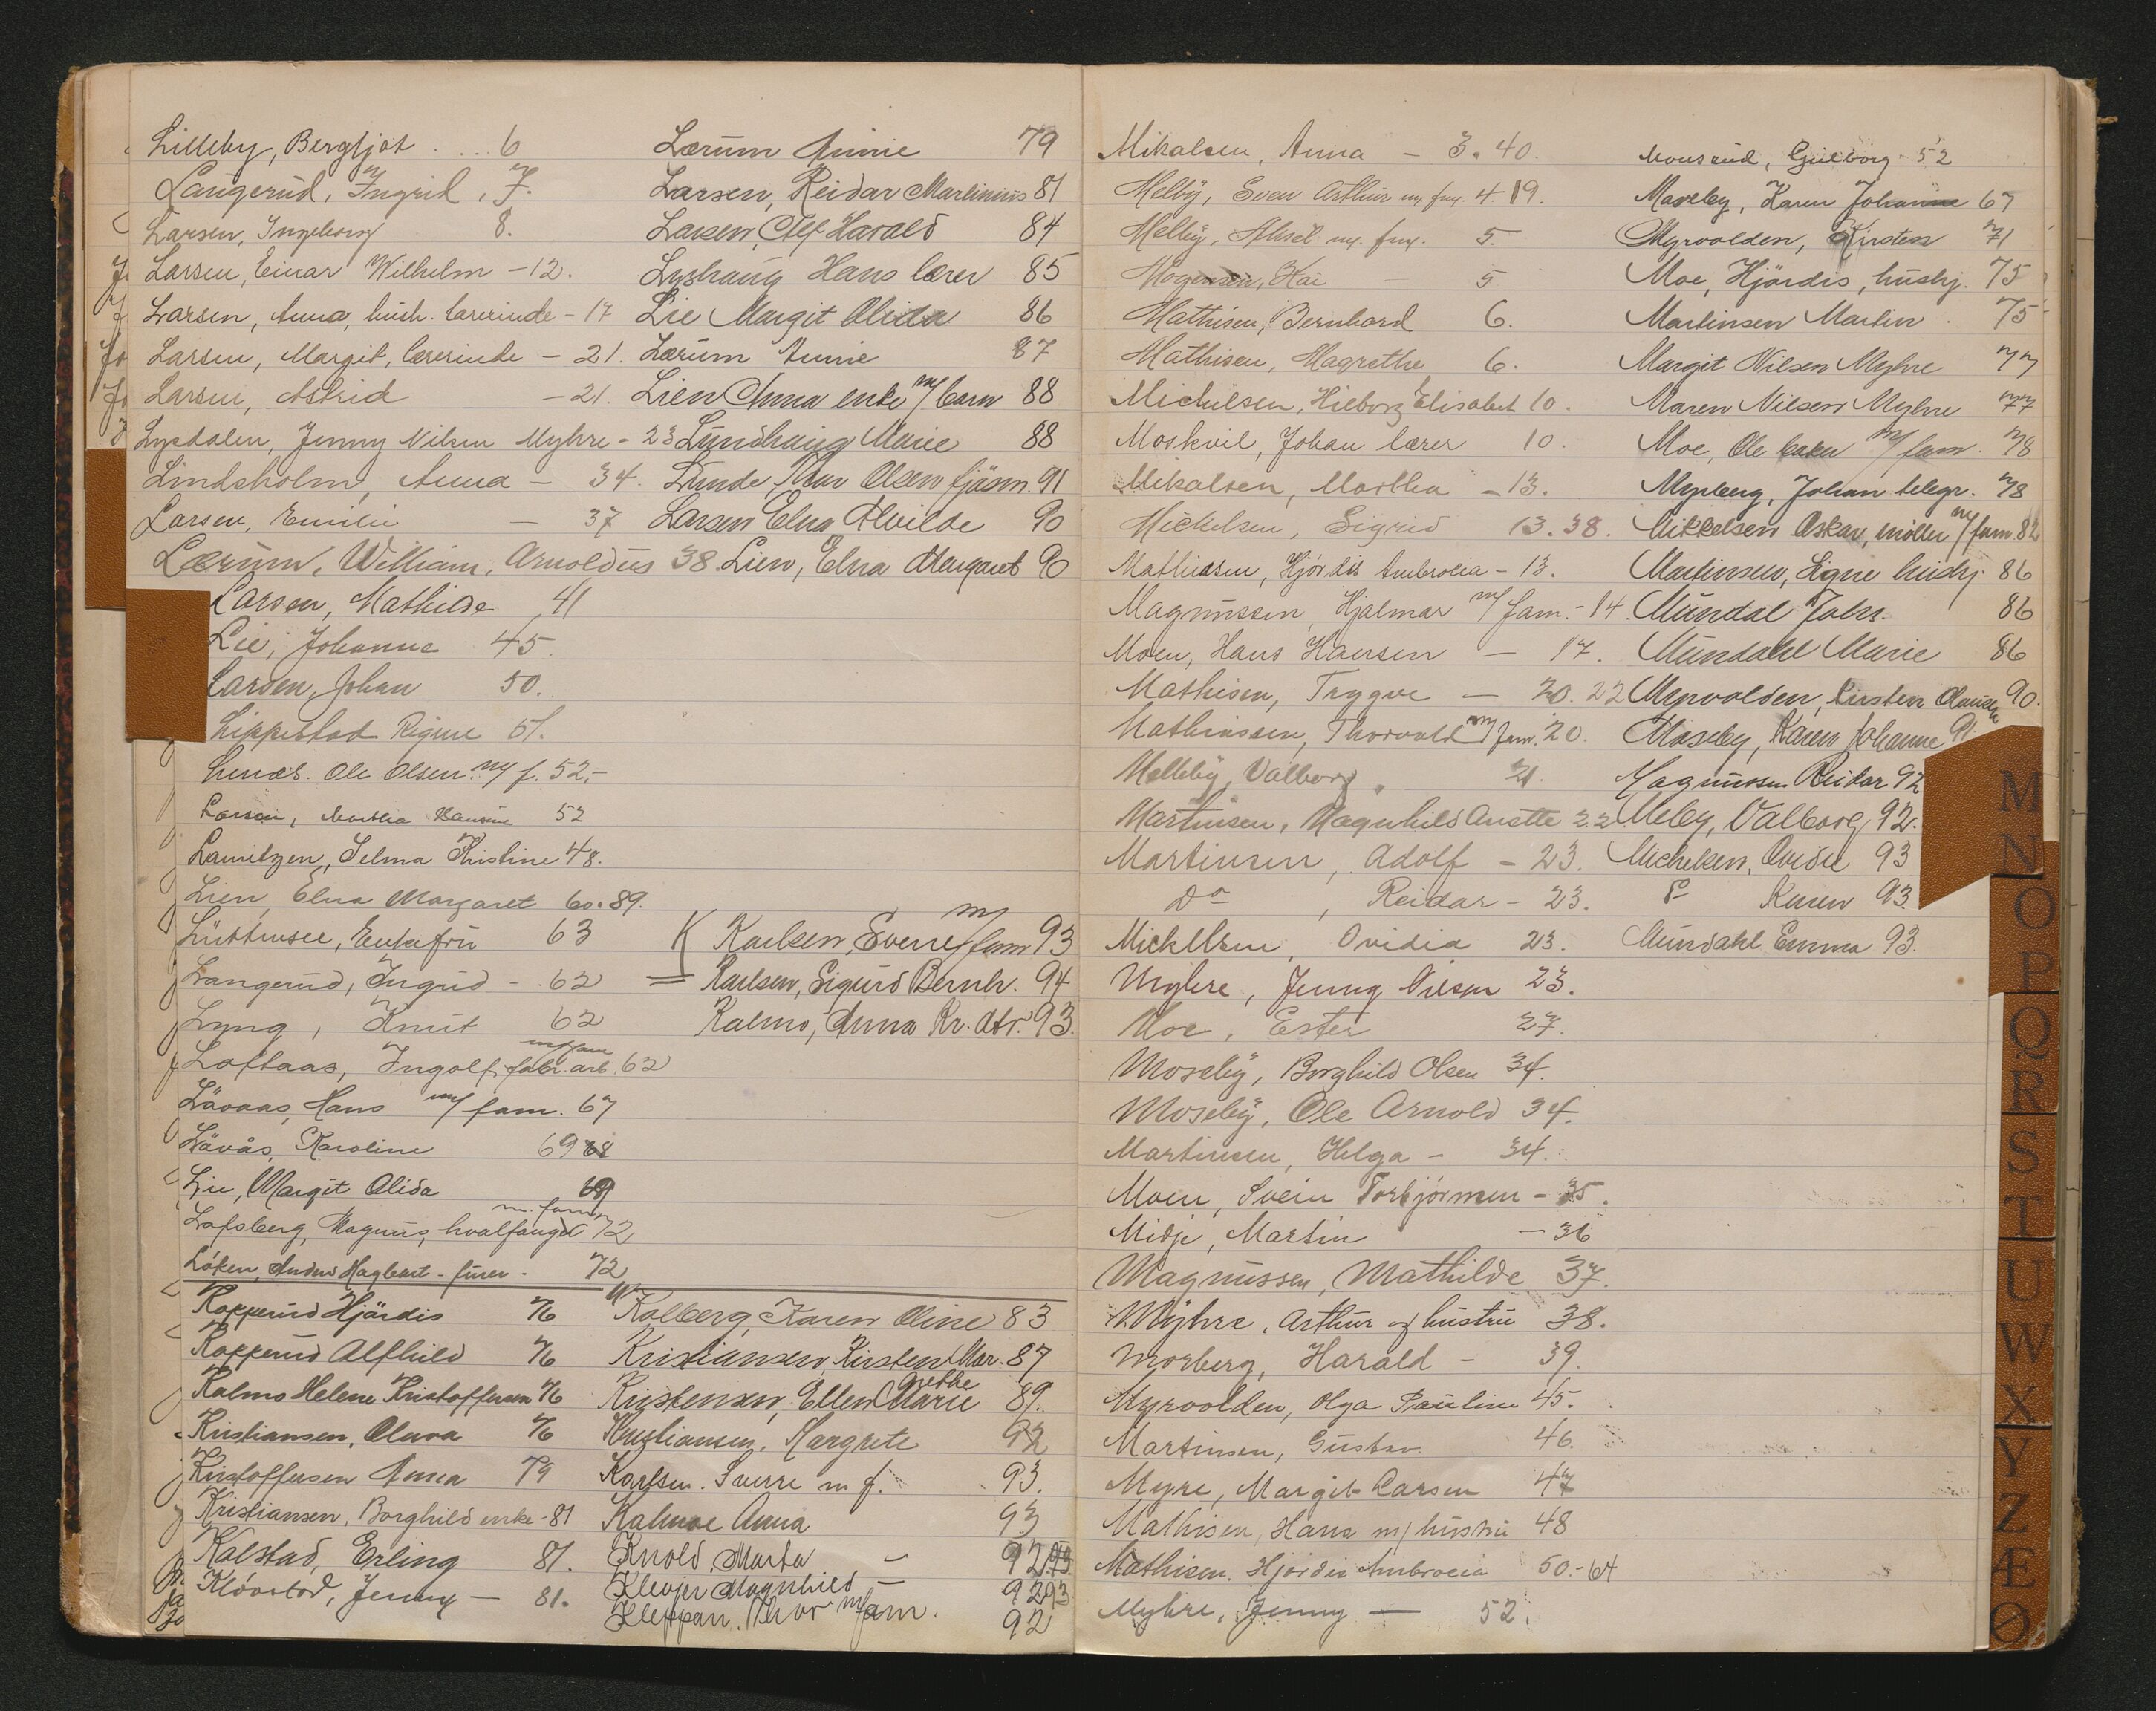 Lilleby, Bergljot . . . 6
Langerud, Ingrid, 7.
Larsen, Ingeborg 8.
Larsen, Einar Wilhelm - 12.
Larsen, Anna, hush. lærerinde - 17
Larsen, Margit, lærerinde - 21.
Larsen, Astrid - 21.
Lysdalen, Jenny Nilsen Myhre - 23
Lindsholm, Anna - 34.
Larsen, Emilie - 37
Lærum, William, Arnoldus 38.
Larsen, Mathilde 41
Lie, Johanne 45.
Larsen, Johan 50.
Lippestad Rigme 51.
Ole Olsen m/f. 52.-
Larsen, Martha 52
Lauritzen, Selma Kristine 48.
Lien, Elna Margaret 60.89.
Enkefru 63
Langerud, Ingrid - 62
Lyng, Knut 62
Loftaas, Ingolf fabr.arb. m/fam 62
Låvaas, Hans m/ fam. 67
Låvås, Karoline 69 68
Lie, Margit Olida 69
Lofsberg, Magnus, hvalfanger m. fam 72
Løken, Anders Hagbart - fører - 72
Kopperud Hjørdis 76
Kopperud Alfhild 76
Kalmo Helene Kristoffersen 76
Kristiansen, Olava 76
Kristoffersen Anna 79
Kristiansen, Borghild enke - 81
Kalstad, Erling 81.
Kløvstad, Jenny - 81.
Lærum Annie 79
Larsen, Reidar Martinius 81
Larsen, Alf Harald 84
Lyshaug Hans lærer 85
Lie Margit Olida 86
Lærum Annie 87
Lien Anna enke m/ barn 88
Lundhaug Marie 88
Lunde, Olsen fjøsm. 91
Larsen Elna Alvilde 90
Lien, Elna Margaret 90
K Karlsen, Sverre m/fam 93
= Karlsen, Sigurd Bernh. 94
Kalmo, Anna Kr. dtr. 93.
K Kolberg, Karen Oline 83
Kristiansen, Kirsten Mar. 87
Kristensen, Ellen Marie Grethe 89.
Kristiansen, Margrete 92
Karlsen. Sverre m f. 93.
Kalmoe Anna 93
Knold, Marta - 92.93
Magnhild - 92 93
Kleppan. Thor m/fam. 92
Mikalsen, Anna - 3.40.
Melby, Sven Arthur m. fm. 4.19.
Melby, Aksel m. fm. 5.
Mogensen, Kai - 5
Mathisen, Bernhard 6.
Mathisen, Magrethe 6.
Michelsen, Hilborg Elisabet 10.
Moskvil, Johan lærer 10.
Mikalsen, Martha - 13.
Michelsen, Sigrid 13.38.
Mathiasen, Hjørdis Ambrosia - 13.
Magnussen, Hjalmar m/ fam. - 14.
Moen, Hans Hansen - 17.
Mathisen, Trygve - 20.22
Mathiassen, Thorvald m/ fam. 20.
Melleby, Valborg, 21.
Martinsen, Magnhild Anette 22
Martinsen, Adolf - 23.
Do, Reidar - 23.
Mickelsen, Ovidia 23.
Myhre, Jenny Nilsen 23.
Moe, Ester 27.
Moseby, Borghild Olsen 34.
Moseby, Ole Arnold 34.
Martinsen, Helga - 34.
Moen, Svein Torbjørnsen - 35.
Midje, Martin - 36
Magnussen, Mathilde 37.
Myhre, Arthur og hustru 38.
Morberg, Harald - 39.
Myrvolden, Olga Pauline 45.
Martinsen, Gustav. 46.
Myre, Margit Larsen 47
Mathisen, Hans m/ hustru 48
Mathisen, Hjørdis Ambrosia 50.-64
Myhre, Jenny - 52.
Mousrud, Gulborg 52
Moseby, Karen Johanne 67
Myrvolden, Kirsten 71
Moe, Hjørdis, hushj. 75
Martinsen Martin. 75
Margit Nilsen Myhre 77
Maren Nilsen Myhre 77
Moe, Ole baker m/ fam. 78
Myrberg, Johan telegr. 78
Mikkelsen Oskar, møller m/ fam 82
Martinsen, Signe hushj. 86
Mundal Johs. 86
Mundahl Marie 86
Myrvolden, Kirsten Olausen 90.
Moseby, Karen Johanne 91.
Magnussen Reidar 92
Meby, Valborg 92.
Michelsen, Ovidie 93
Do Karen 93
Mundahl Emma 93.
M
N
O
P
Q
R
S
T
U
W
X
Y
Z
Æ
Ø